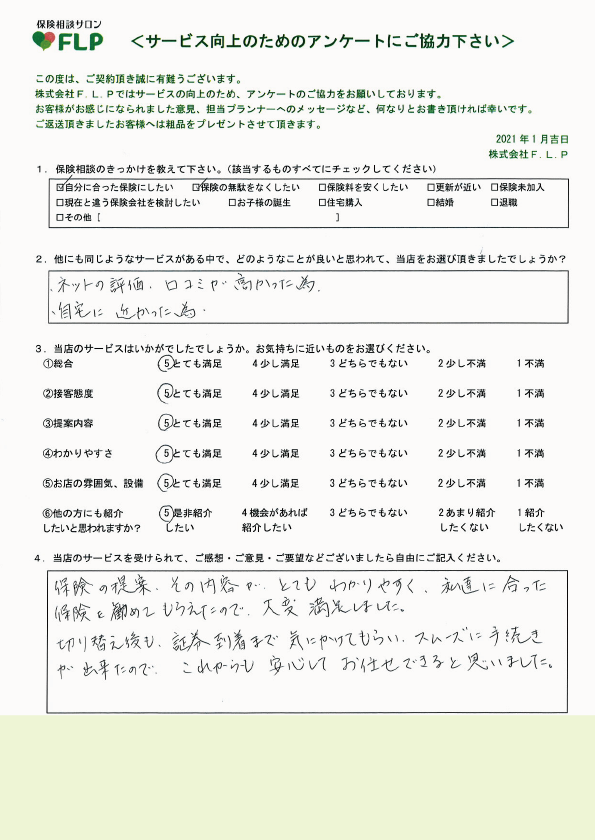 保険相談サロン
FLP
＜サービス向上のためのアンケートにご協力下さい＞
この度は、ご契約頂き誠に有難うございます。
株式会社Ｆ.Ｌ.Ｐではサービスの向上のため、アンケートのご協力をお願いしております。
お客様がお感じになられました意見、担当プランナーへのメッセージなど、何なりとお書き頂ければ幸いです。
ご返送頂きましたお客様へは粗品をプレゼントさせて頂きます。
2021年1月吉日
株式会社Ｆ.Ｌ.Ｐ
１．保険相談のきっかけを教えて下さい。（該当するものすべてにチェックしてください）
☑自分に合った保険にしたい ☑保険の無駄をなくしたい □保険料を安くしたい □更新が近い □保険未加入
□現在と違う保険会社を検討したい □お子様の誕生 □住宅購入 □結婚 □退職
□その他［ ］
２．他にも同じようなサービスがある中で、どのようなことが良いと思われて、当店をお選び頂きましたでしょうか？
・ネットの評価、口コミが高かった為、
・自宅に近かった為・
３．当店のサービスはいかがでしたでしょうか。お気持ちに近いものをお選びください。
①総合 5とても満足 4少し満足 3どちらでもない 2少し不満 1不満
②接客態度 5とても満足 4少し満足 3どちらでもない 2少し不満 1不満
③提案内容 5とても満足 4少し満足 3どちらでもない 2少し不満 1不満
④わかりやすさ 5とても満足 4少し満足 3どちらでもない 2少し不満 1不満
⑤お店の雰囲気、設備 5とても満足 4少し満足 3どちらでもない 2少し不満 1不満
⑥他の方にも紹介 5是非紹介 4機会があれば 3どちらでもない 2あまり紹介 1紹介
したいと思われますか？ したい 紹介したい したくない したくない
４．当店のサービスを受けられて、ご感想・ご意見・ご要望などございましたら自由にご記入ください。
保険の提案、その内容が、とてもわかりやすく、私達に合った
保険を勧めてもらえたので、大変満足しました。
切り替え後も、証券到着まで気にかけてもらい、スムーズに手続き
が出来たので、これからも安心してお任せできると思いました。